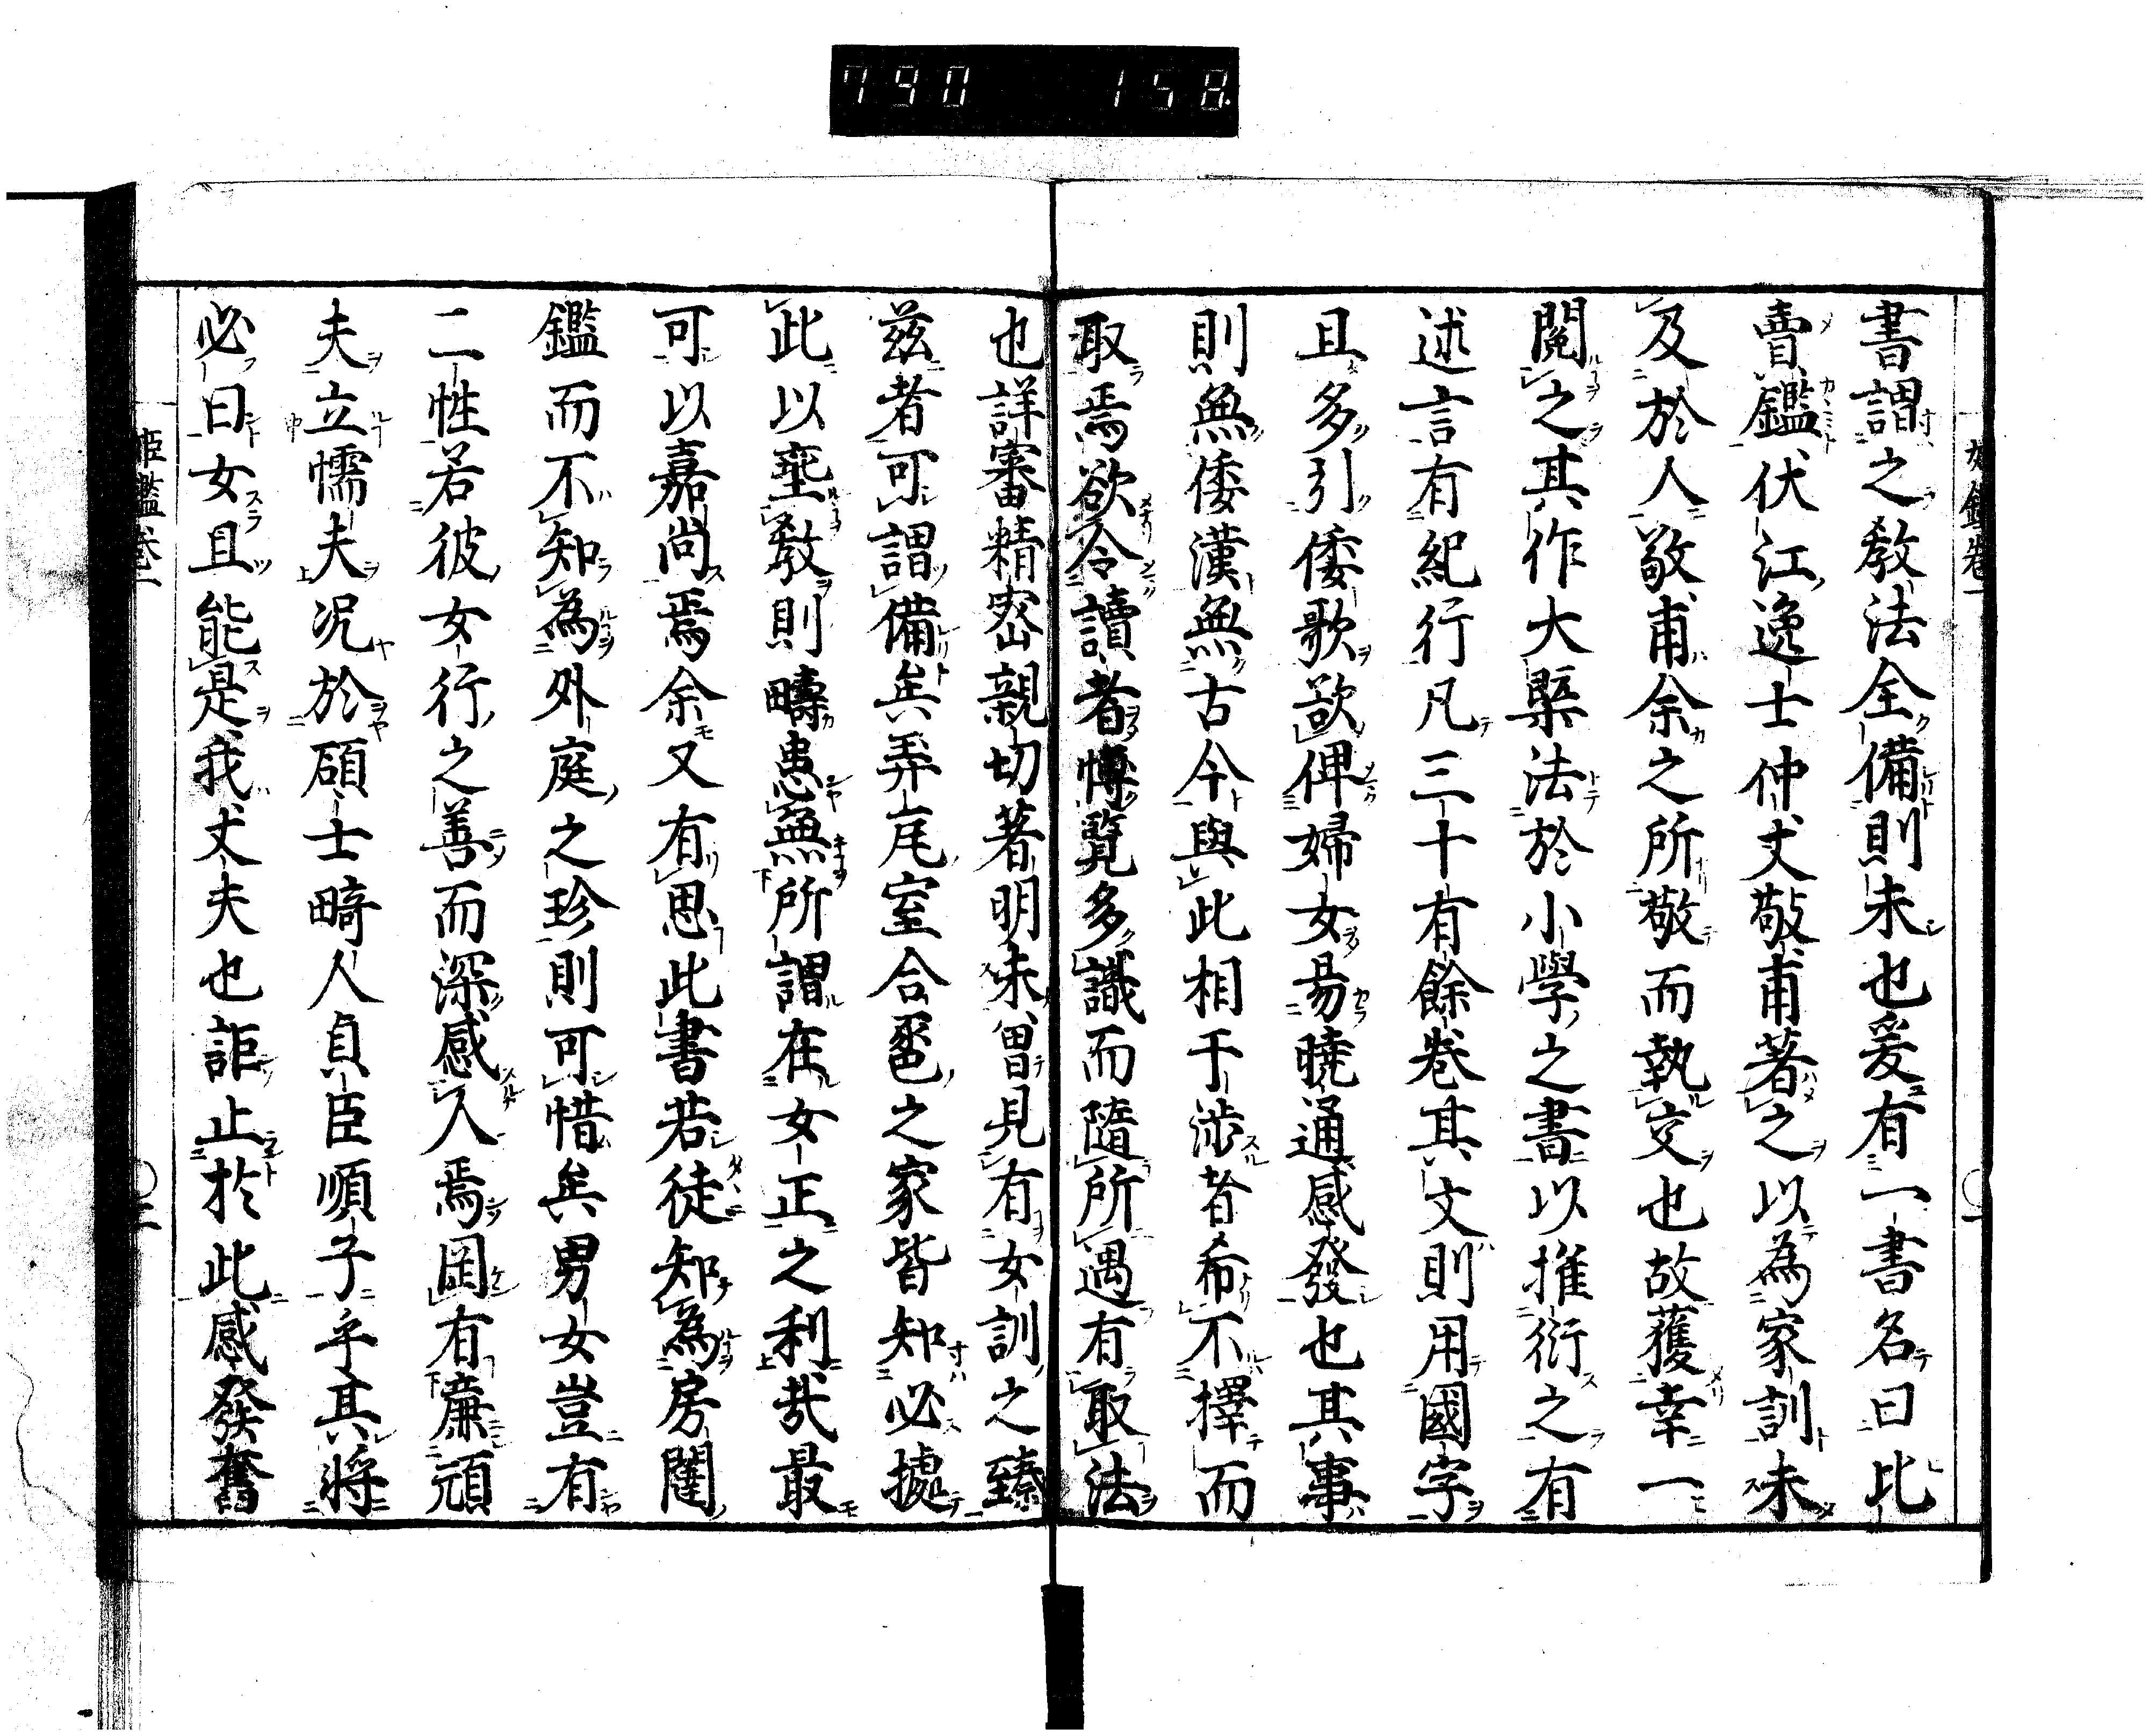 790 158
書謂之教法全備則未也爰有一書名曰比
賣鑑伏江逸士仲𠀋敬甫著之以為家訓未
及於人敬甫余之所敬而執交也故獲幸一
閱之其作大槩法於小學之書以推衍之有
述言有紀行凡三十有餘卷其文則用國字
且多引倭歌欲俾婦女易曉通感發也其事
則無倭漢無古今與此相干涉者希不擇而
取焉欲令讀者博覽多識而隨所遇有取法
也詳審精密親切著明未曽見有女訓之臻
茲者可謂備矣弄尾室合卺之家皆知必據
此以埀教則疇患無所謂在女正之利哉最
可以嘉尚焉余又有思此書若徒知為房闈
鑑而不知為外庭之珍則可惜矣男女豈有
二性若彼女行之善而深感人焉罔有廉頑
夫立懦夫況於碩士畸人貞臣順子乎其將
必曰女且能是我丈夫也詎止於此感發奮
姬鑑卷一